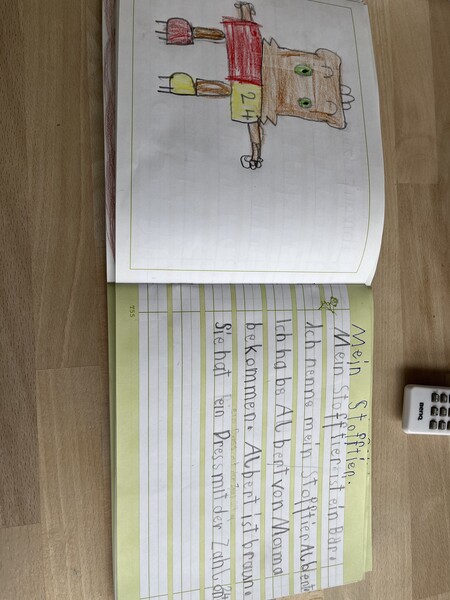 24
Mein Stofftier.
Mein Stofftier ist ein Bär.
Ich nenne mein Stofftier Albert
Ich habe Albert von Mama
bekommen. Albert ist braun.
Sie hat ein Dress mit der Zahl
BenQ